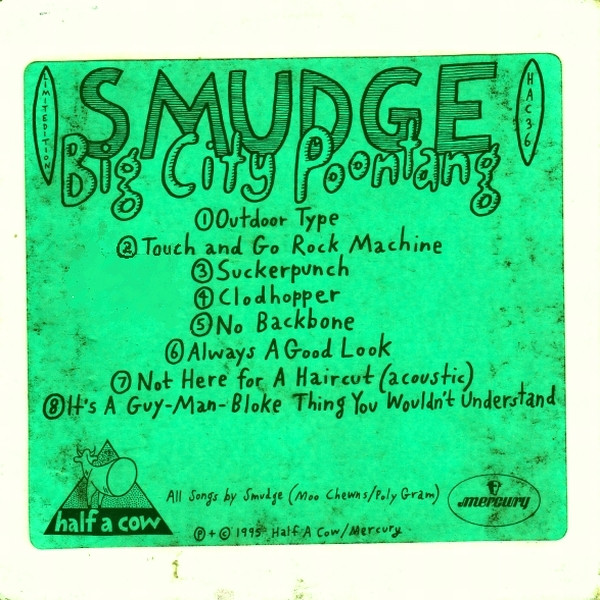 LIMITEDITION
SMUDGE
HAC36
Big City Poontang
① Outdoor Type
② Touch and Go Rock Machine
③ Suckerpunch
④ Clodhopper
⑤ No Backbone
⑥ Always A Good Look
⑦ Not Here for A Haircut (acoustic)
⑧ It's A Guy-Man-Bloke Thing You Wouldn't Understand
half a cow
All Songs by Smudge (Moo Chewns/Poly Gram)
mercury
℗ + © 1995 Half A Cow/Mercury